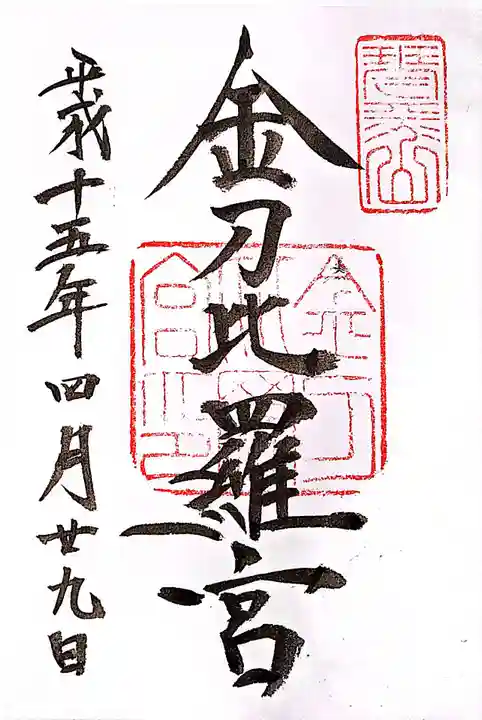 金刀比羅宮
平成十五年四月廿九日